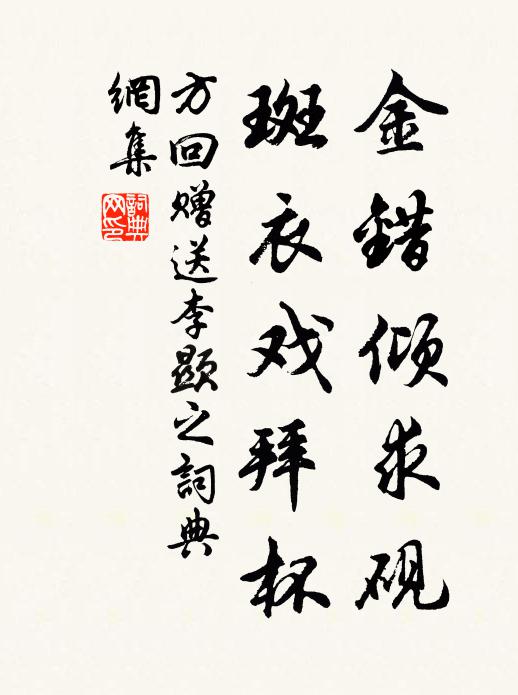 金錯傾求砚
斑衣戏拜杯
方回赠送李顕之詞典
網集
詞典
网印